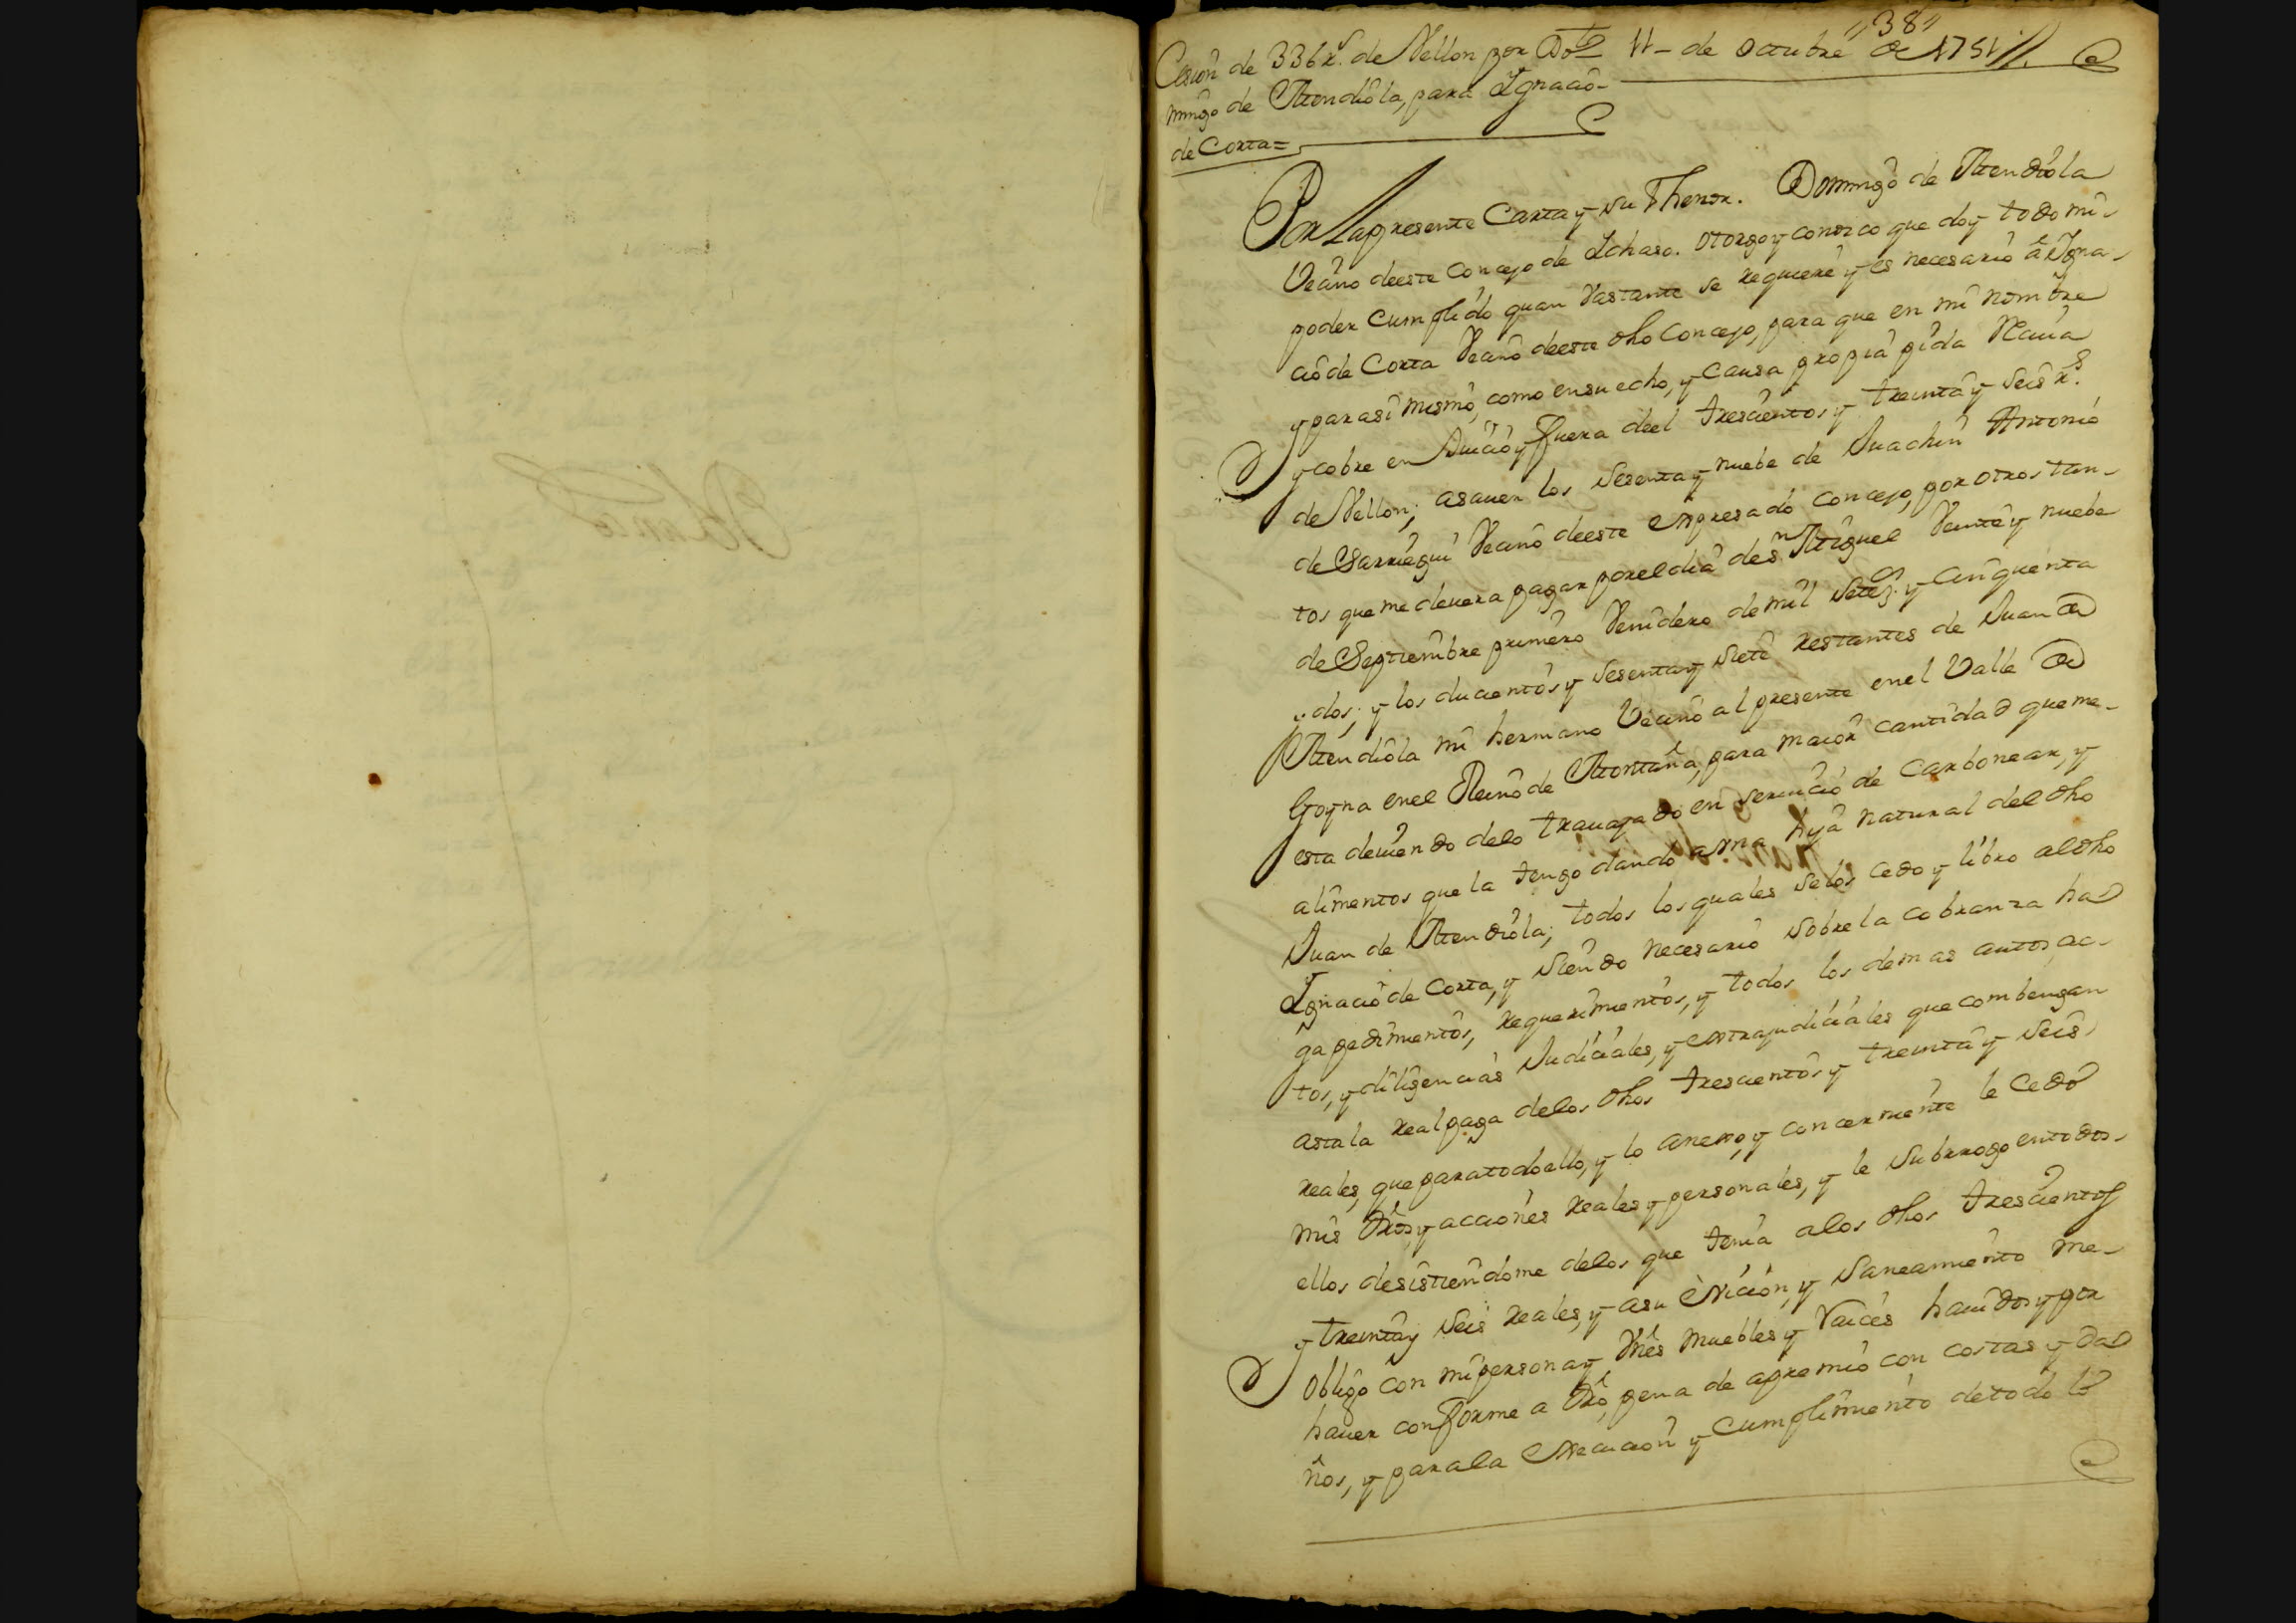 "38"
Cesion de 336 rs. de Vellon por Do- 11- de octubre de 1751//.
mingo de Mendiola, para Ygnacio-
de Corta=
Por La presente Carta y su Thenor. Domingo de Mendiola
Vecino de este Concejo de Ichaso. otorgo y conozco que doy todo mi-
poder Cumplido quan Vastante se requiere y es necesario â Ygna-
cio de Corta Vecino de este dho Concejo, para que en mi nombre
y para si mismo, como en su echo, y Causa propia pida Reciua
y cobre en Juicio y fuera del trescientos y treinta y seis rs.
de Vellon; a sauer los sesenta y nuebe de Juachin Antonio
de Sarriegui Vecino de este expresado Concejo, por otros tan-
tos que me deuera pagar por el dia de Sn Miguel Veinte y nuebe
de Septiembre primero Venidero de mil setes. y Cinquenta
y dos; y los ducientos y sesenta y siete restantes de Juan de
Mendiola mi hermano Vecino al presente en el Valle de
Goyna en el Reino de Montaña, para maior cantidad que me-
esta deuiendo delo trauajado en seruicio de Carbonear, y
alimentos que la tengo dando a vna hija natural del dho
Juan de Mendiola; todos los quales se los cedo y libro al dho
Ygnacio de Corta, y siendo necesario sobre la cobranza ha-
ga pedimentos, requerimientos, y todos los demas autos, ac-
tos, y diligencias Judiciales, y extrajudiciales que combengan
asta la real paga delos dhos trescientos y treinta y seis
reales, que para todo ello, y lo anexo, y concerniente le Cedo
mis dros, y acciones reales y personales, y le Subrrogo en todos-
ellos desistiendome delos que tenia a los dhos trescientos
y treinta y seis reales, y a su eviccion, y saneamiento me-
obligo con mi persona y Vnes muebles y Raices hauidos y por
hauer conforme a dro, pena de apremio con costas y da-
ños, y para la execucion y Cumplimiento de todo lo